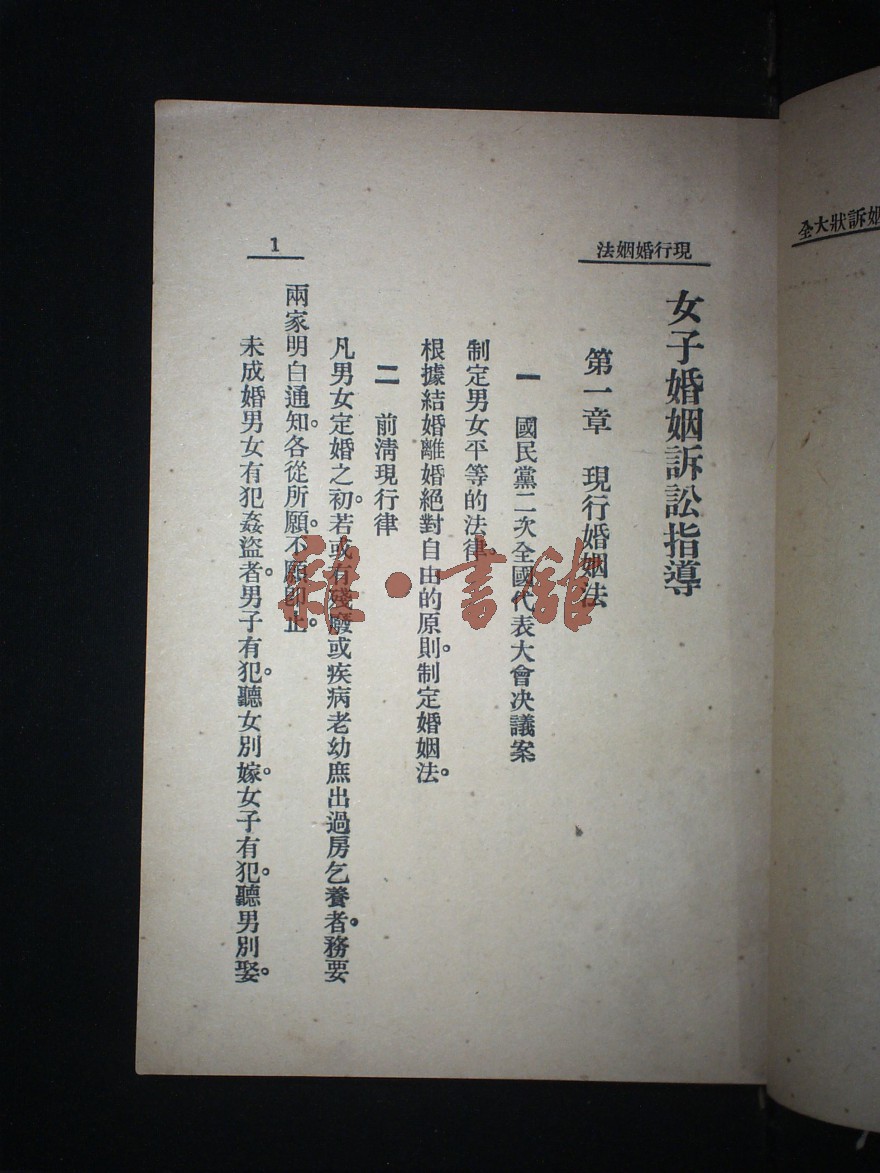 現行婚姻法
1
女子婚姻訴訟指導
第一章 現行婚姻法
一 國民黨二次全國代表大會決議案
制定男女平等的法律。
根據結婚離婚絕對自由的原則。制定婚姻法。
二 前清現行律
凡男女定婚之初。若或有殘廢或疾病老幼庶出過房乞養者。務要
兩家明白通知。各從所願。不願即止。
未成婚男女有犯姦盜者。男子有犯。聽女別嫁。女子有犯。聽男別娶。
姻訴狀大全
雜·書館